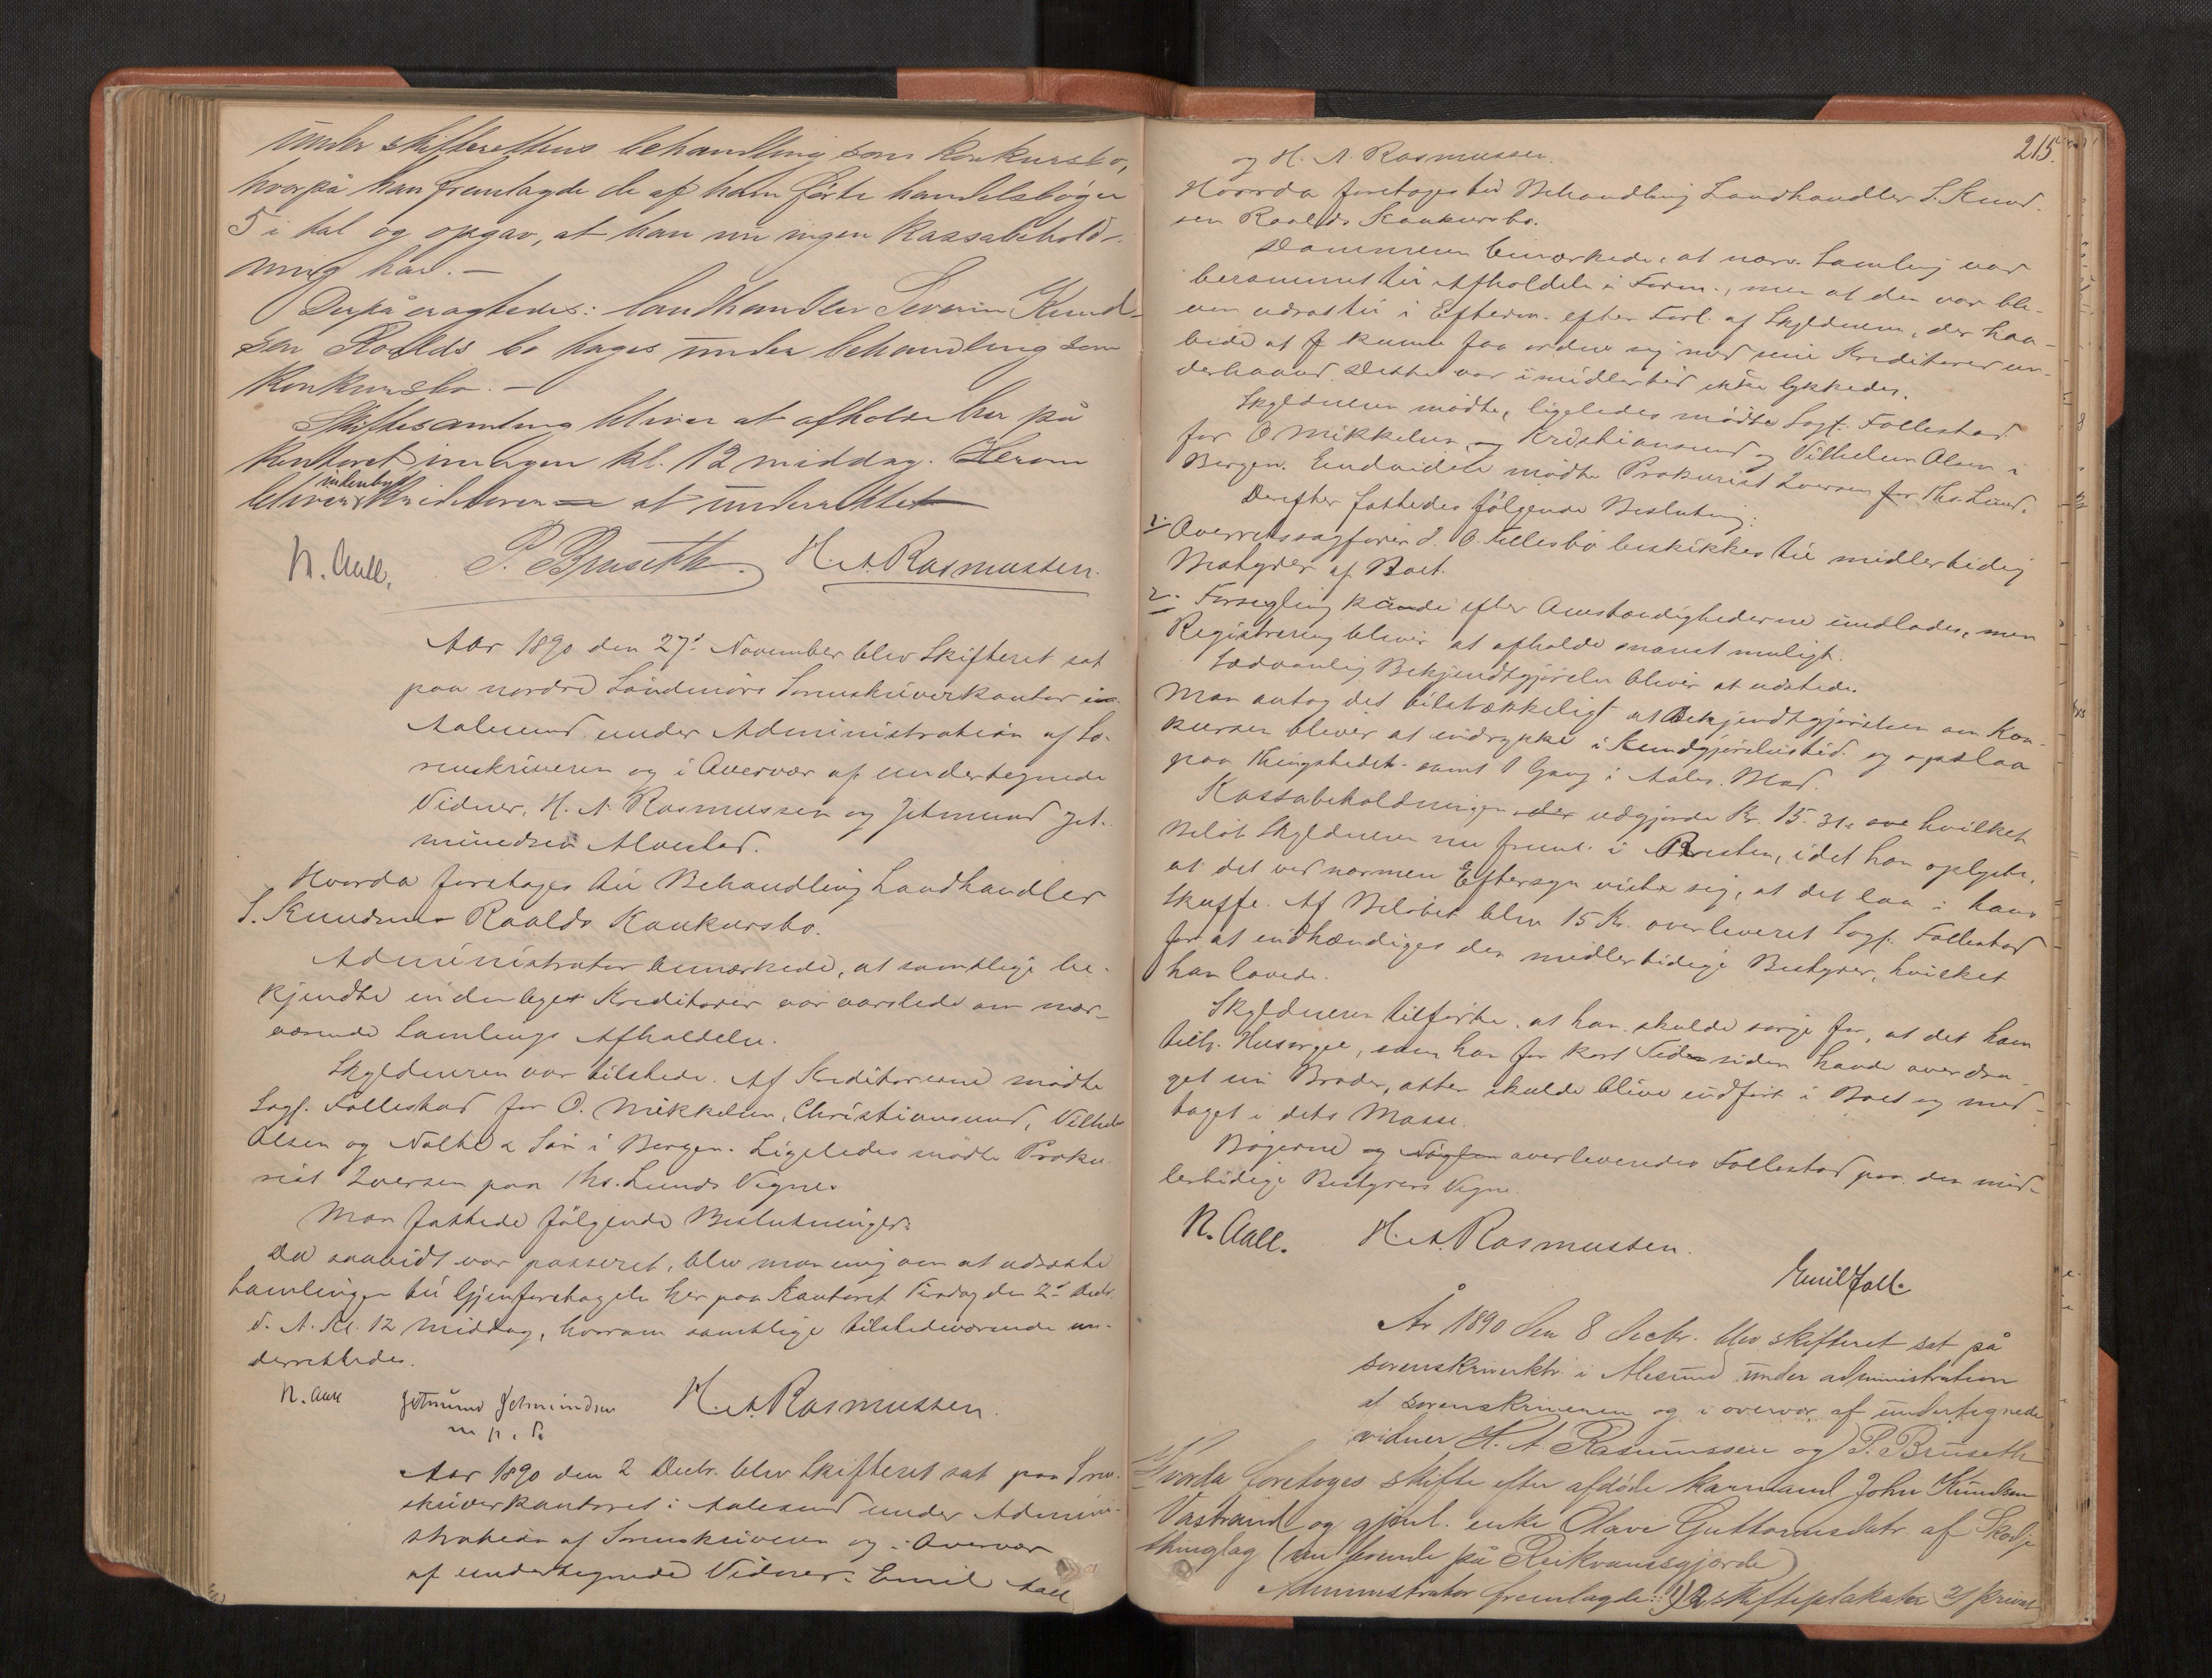 under skifterettens behandling som konkursbo,
hvorpå han fremlagde de af ham førte handelsbøger
5 i tal og opgav, at han nu ingen kassabehold-
ning har. —
Derpå eragtedes: landhandler Severin Knud-
sen Roalds bo tages under behandling som
konkursbo. —
Skiftesamling bliver at afholde her på
kontoret imorgen kl. 12 middag. Herom
bliver indenbys kreditorer at underrette
N. Aall. P. Bruseth. H. A. Rasmussen.
Aar 1890 den 27de November blev Skifteret sat
paa nordre Søndmøre Sorenskriverkontor i
Aalesund under Administration af So-
renskriveren og i Overvær af undertegnede
Vidner, H. A. Rasmussen og Jetmund Jet-
mundsen Alvestad.
Hvorda foretages til Behandling Landhandler
S. Knudsen Roalds Konkursbo.
Administrator bemærkede, at samtlige be-
kjendte indenbyes Kreditorer var varslede om nær-
værende Samlings Afholdelse.
Skyldneren var tilstede. Af Kreditorerne mødte
Sagf. Follestad for O. Mikkelsen, Christiansund, Vilhelm
Olsen og Nolte & Søn i Bergen. Ligeledes mødte Proku-
rist Iversen paa Ths. Lunds Vegne.
Man fattede følgende Beslutninger:
Da saavidt var passeret, blev man enig om at udsætte
Samlingen til Gjenforetagelse her paa Kontoret Tirsdag den 2den Decbr.
d. A. Kl. 12 Middag, hvorom samtlige tilstedeværende un-
derrettedes.
N. Aall Jetmund Jetmundsen H. A. Rasmussen.
m. p. P.
Aar 1890 den 2 Decbr. blev Skifteret sat paa Sorn-
skriverkontoret i Aalesund under Admini-
stration af Sorenskriveren og i Overvær
af undertegnede Vidner: Emil Aall
215.
og H. A. Rasmussen.
Hvorda foretages til Behandling Landhandler S. Knud-
sen Roalds Konkursbo.
Dommeren bemærkede, at nærv. Samling var
berammet til Afholdelse i Form., men at den var ble-
ven udsat til i Efterm. efter Forl. af Skyldneren, der haa-
bede at kunne faa ordne sig med sine Kreditorer un-
derhaand. Dette var imidlertid ikke lykkedes.
Skyldneren mødte, ligeledes mødte Sagf. Follestad
for O Mikkelsen og Kristiansund og Vilhelm Olsen i
Bergen. Endvidere mødte Prokurist Iversen for Ths. Lund.
Derefter fattedes følgende Beslutning:
1. Overretssagfører J. O. Tellesbø beskikkes til midlertidig
Bestyrer af Boet.
2. Forsegling kunde efter Omstændighederne undlades, men
Registrering bliver at afholde snarest muligt.
Sædvanlig Bekjendtgjørelse bliver at udstede.
Man antog det tilstrækkeligt at Bekjendtgjørelsen om Kon-
kursen bliver at indrykke i Kundgjørelsestid. og opslaa
paa Thingstedet samt 1 Gang i Aales. Blad.
Kassabeholdningen udgjorde Kr. 15.31, hvilket
Beløb Skyldneren nu freml. i Retten, idet han oplyste,
at det ved nærmere Eftersyn viste sig, at det laa i hans
Skuffe. Af Beløbet blev 15 Kr. overleveret Sagf. Follestad
for at indhændiges den midlertidige Bestyrer, hvilket
han lovede.
Skyldneren tilførte, at han skulde sørge for, at det ham
tilh. Husorgel, som han for kort Tid siden havde overdra-
get sin Broder, atter skulde blive indført i Boet og med-
taget i dets Masse.
Bøgerne og Nøglen overleveredes Follestad paa den mid-
lertidige Bestyrers Vegne.
N. Aall. H. A. Rasmussen.
Emil Aall.
År 1890 den 8 Decbr. blev skifteret sat på
sorenskriverktr. i Alesund under administration
af sorenskriveren og i overvær af undertegnede
vidner H. A. Rasmussen og P. Bruseth
Hvorda foretoges skifte efter afdøde kårmand John Knudsen
Vastrand og gjenl. enke Olave Guttormsdatr. af Skodje
thinglag (nu boende på Reikvamsgjerde)
Administrator fremlagde: 1) 2 skifteplakater 2)